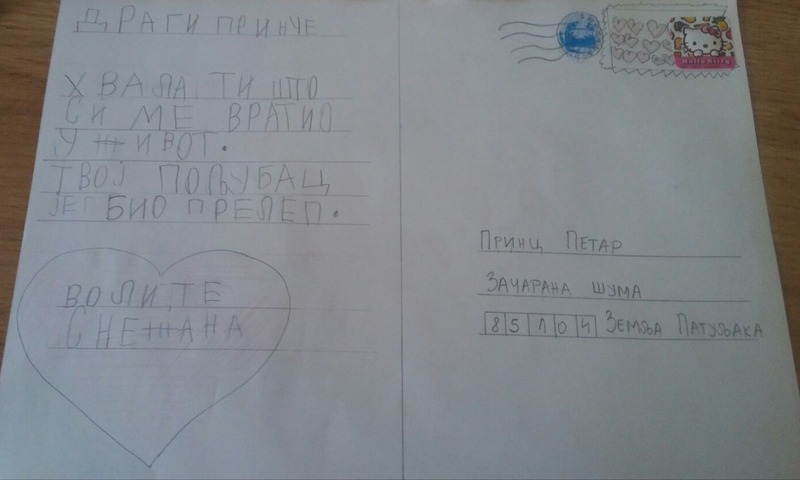 ДРАГИ ПРИНЧЕ
ХВАЛА ТИ ШТО
СИ МЕ ВРАТИО
У ЖИВОТ.
ТВОЈ ПОЉУБАЦ
ЈЕ БИО ПРЕЛЕП.
ВОЛИ ТЕ
СНЕЖАНА
Hello Kitty
ПРИНЦ ПЕТАР
ЗАЧАРАНА ШУМА
85104 ЗЕМЉА ПАТУЉАКА